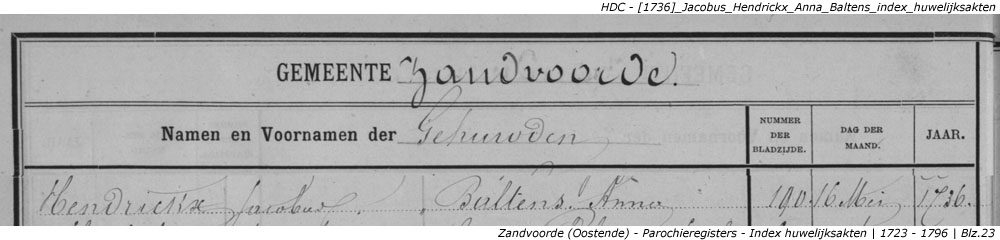 HDC - [1736]_Jacobus_Hendrickx_Anna_Baltens_index_huwelijksakten
GEMEENTE Zandvoorde.
Namen en Voornamen der Gehuwden
NUMMER DER BLADZIJDE.
DAG DER MAAND.
JAAR.
Hendrickx Jacobus. Baltens Anna 190 16 Mei 1736.
Zandvoorde (Oostende) - Parochieregisters - Index huwelijksakten | 1723 - 1796 | Blz.23